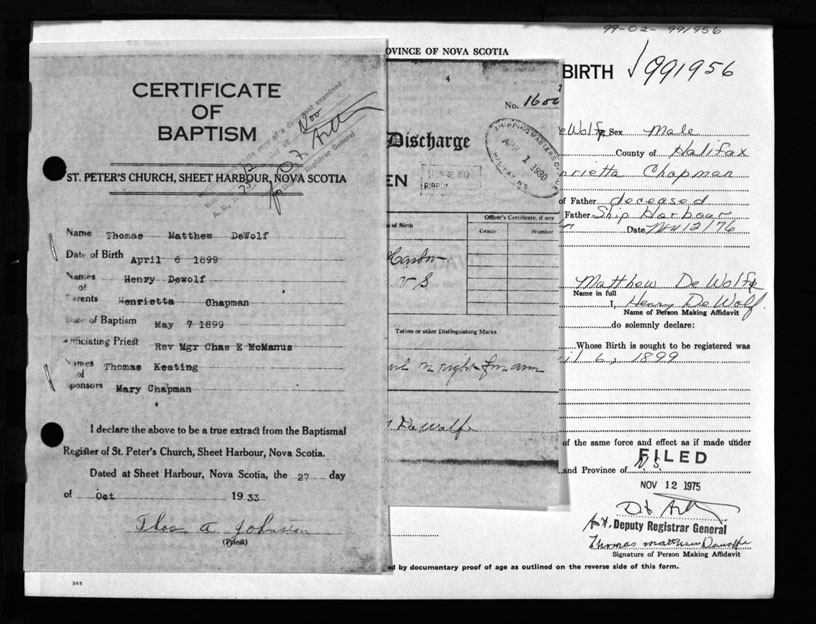 99-02-991956
OVINCE OF NOVA SCOTIA
BIRTH 991956
eWolf Sex Male
County of Halifax
nrietta Chapman
of Father deceased
Father Ship Harbour
Date Nov 12/76
Matthew DeWolfe
Name in full
I, Henry DeWolf
Name of Person Making Affidavit
do solemnly declare:
Whose Birth is sought to be registered was
il 6, 1899
of the same force and effect as if made under
and Province of N.S.
FILED
NOV 12 1975
Deputy Registrar General
Thomas Matthew
Signature of Person Making Affidavit
ed by documentary proof of age as outlined on the reverse side of this form.
4
No. 1600
Discharge
SHIPPING MASTERS OFFICE
APR 1 1930
HALIFAX N.S.
EN
of Birth
Officer's Certificate, if any
Grade Number
N S
Tattoo or other Distinguishing Marks
right forearm
DeWolfe
CERTIFICATE
OF
BAPTISM
Registrar General
ST. PETER'S CHURCH, SHEET HARBOUR, NOVA SCOTIA
Name Thomas Matthew DeWolf
Date of Birth April 6 1899
Names Henry Dewolf
of
Parents Henrietta Chapman
Date of Baptism May 7 1899
Officiating Priest Rev Mgr Chas E McManus
Names Thomas Keating
of
Sponsors Mary Chapman
I declare the above to be a true extract from the Baptismal
Register of St. Peter's Church, Sheet Harbour, Nova Scotia.
Dated at Sheet Harbour, Nova Scotia, the 27 day
of Oct 1933
Thos A Johnston
(Priest)